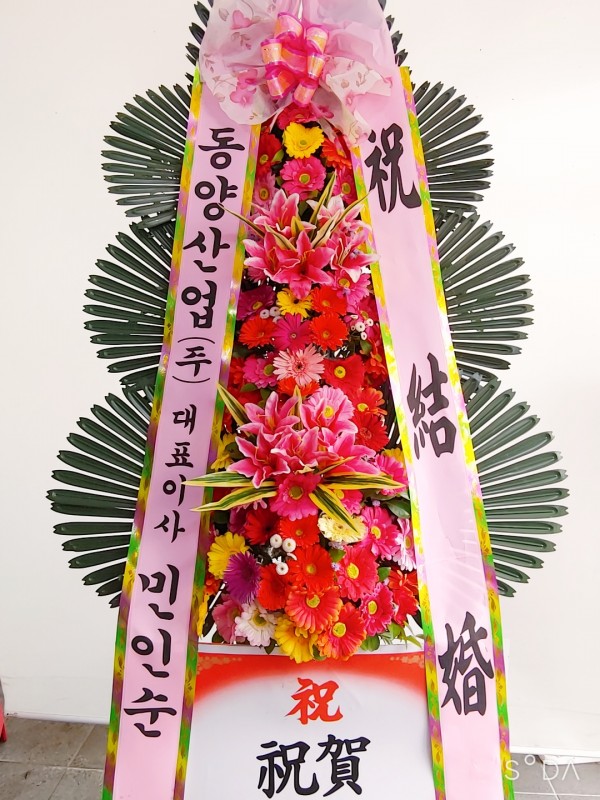 동양산업(주) 대표이사 민인순
祝 結 婚
祝
祝賀
SODA